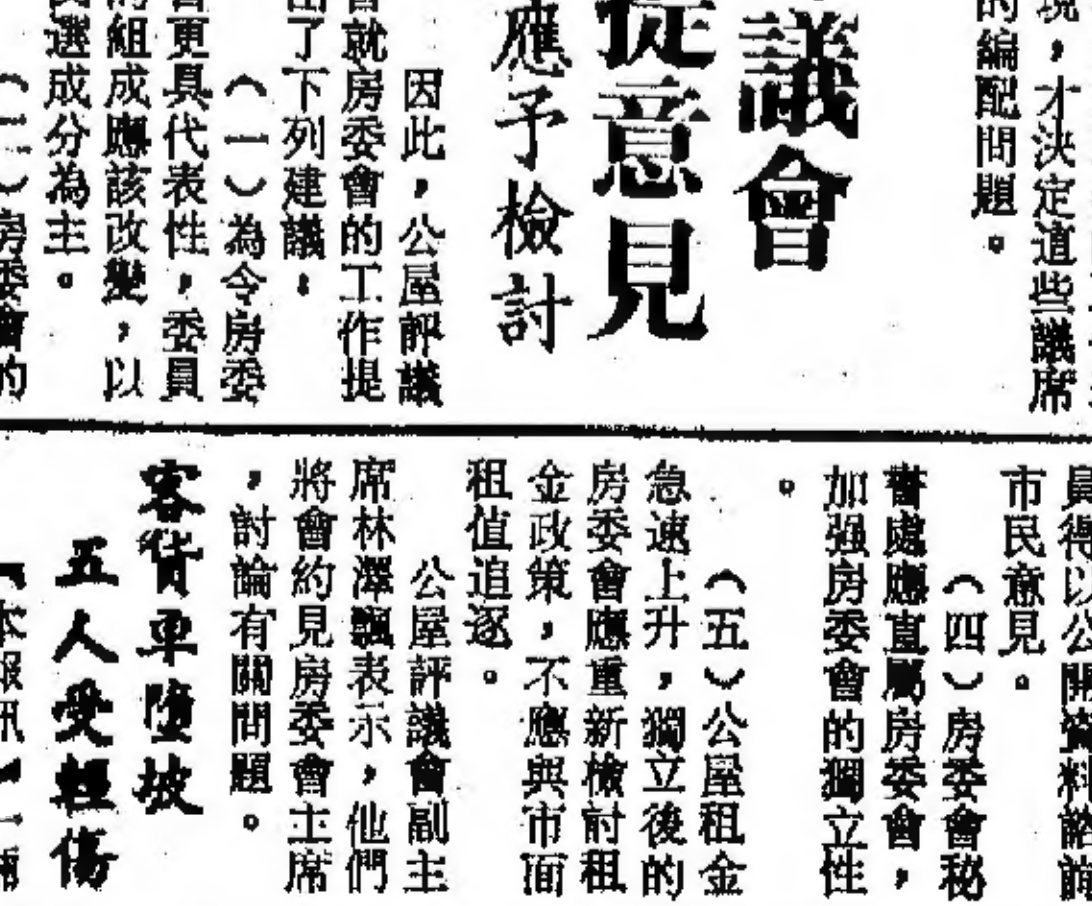 現，才決定這些議席
的編配問題。
議會
提意見
應予檢討
因此，公屋評議
會就房委會的工作提
出了下列建議：
（一）為令房委
會更具代表性，委員
的組成應該改變，以
選成分為主。
（二）房委會的
員得以公開資料諮詢
市民意見。
（四）房委會秘
書處應直屬房委會，
加强房委會的獨立性
。
（五）公屋租金
急速上升，獨立後的
房委會應重新檢討租
金政策，不應與市面
租值追逐。
公屋評議會副主
席林澤飄表示，他們
將會約見房委會主席
，討論有關問題。
客貨車墮坡
五人受輕傷
【本報訊】一輛